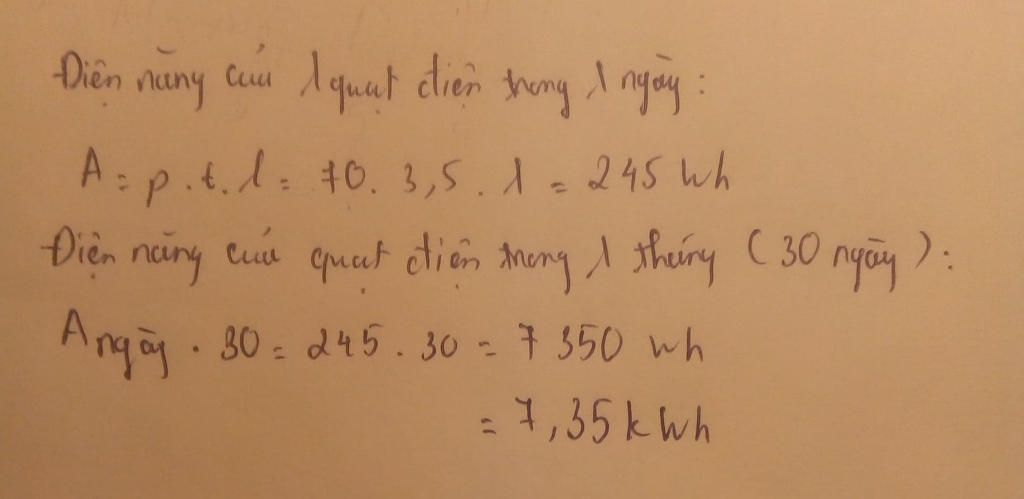 Điện năng của 1 quạt điện trong 1 ngày:
A = p.t.1 = 70. 3,5. 1 = 245 Wh
Điện năng của quạt điện trong 1 tháng (30 ngày):
A ngày . 30 = 245 . 30 = 7 350 wh
= 7,35 kWh